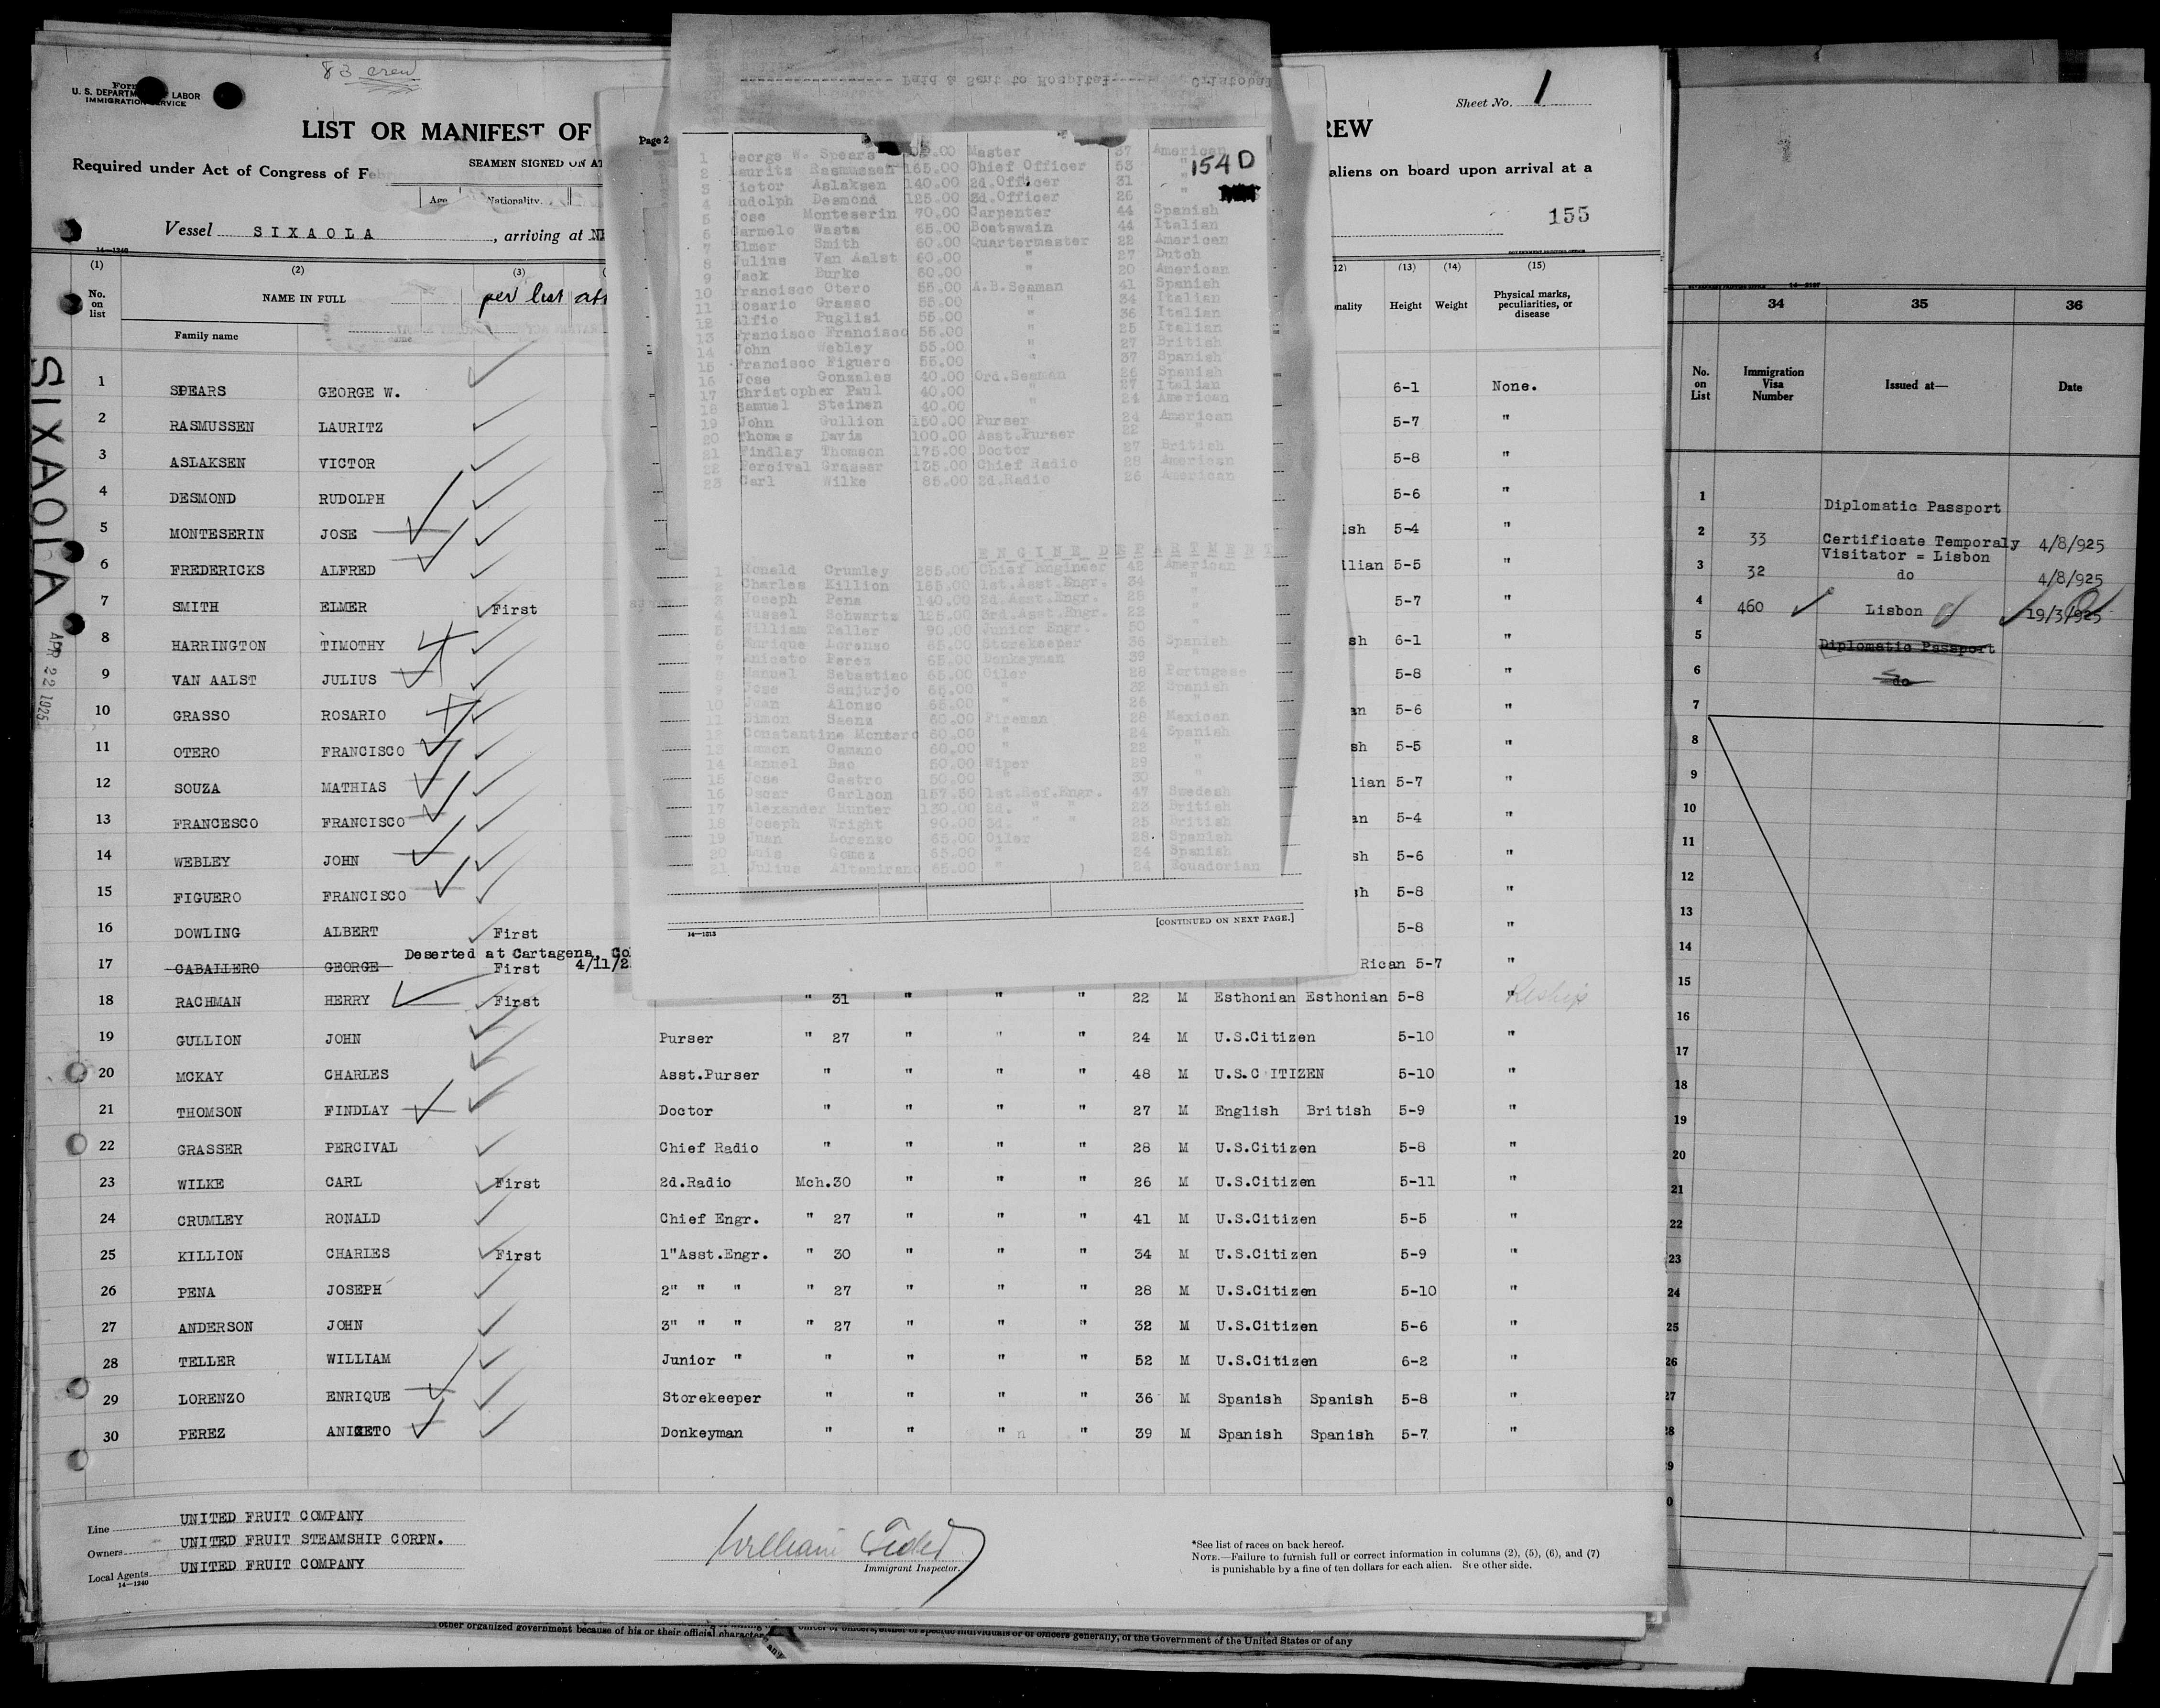 83 crew
U. S. DEPARTM LABOR
IMMIGRATION SERVICE
LIST OR MANIFEST OF
REW
Sheet No. 1
Required under Act of Congress of Feb
SEAMEN SIGNED ON AT
aliens on board upon arrival at a
Age Nationality.
Vessel SIXAOLA, arriving at NE
155
14—1240
(1) (2) (3) (13) (14) (15)
No. on list
NAME IN FULL
per list att
Height Weight Physical marks, peculiarities, or disease
Family name
SIXAOLA
APR 22 1925
1 SPEARS GEORGE W. 6-1 None.
2 RASMUSSEN LAURITZ 5-7 "
3 ASLAKSEN VICTOR 5-8 "
4 DESMOND RUDOLPH 5-6 "
5 MONTESERIN JOSE ish 5-4 "
6 FREDERICKS ALFRED llian 5-5 "
7 SMITH ELMER First 5-7 "
8 HARRINGTON TIMOTHY sh 6-1 "
9 VAN AALST JULIUS 5-8 "
10 GRASSO ROSARIO an 5-6 "
11 OTERO FRANCISCO sh 5-5 "
12 SOUZA MATHIAS lian 5-7 "
13 FRANCESCO FRANCISCO an 5-4 "
14 WEBLEY JOHN sh 5-6 "
15 FIGUERO FRANCISCO sh 5-8 "
16 DOWLING ALBERT First 5-8 "
Deserted at Cartagena, Co
17 CABALLERO GEORGE First 4/11/2 Rican 5-7 "
18 RACHMAN HERRY First " 31 " " " 22 M Esthonian Esthonian 5-8 "
19 GULLION JOHN Purser " 27 " " " 24 M U.S.Citizen 5-10 "
20 MCKAY CHARLES Asst.Purser " " " " 48 M U.S.C ITIZEN 5-10 "
21 THOMSON FINDLAY Doctor " " " " 27 M English British 5-9 "
22 GRASSER PERCIVAL Chief Radio " " " " 28 M U.S.Citizen 5-8 "
23 WILKE CARL First 2d.Radio Mch.30 " " " 26 M U.S.Citizen 5-11 "
24 CRUMLEY RONALD Chief Engr. " 27 " " " 41 M U.S.Citizen 5-5 "
25 KILLION CHARLES First 1"Asst.Engr. " 30 " " " 34 M U.S.Citizen 5-9 "
26 PENA JOSEPH 2" " " " 27 " " " 28 M U.S.Citizen 5-10 "
27 ANDERSON JOHN 3" " " " 27 " " " 32 M U.S.Citizen 5-6 "
28 TELLER WILLIAM Junior " " " " " 52 M U.S.Citizen 6-2 "
29 LORENZO ENRIQUE Storekeeper " " " " 36 M Spanish Spanish 5-8 "
30 PEREZ ANICETO Donkeyman " " " " 39 M Spanish Spanish 5-7 "
Line UNITED FRUIT COMPANY
Owners UNITED FRUIT STEAMSHIP CORPN.
Local Agents UNITED FRUIT COMPANY
14—1240
Immigrant Inspector.
*See list of races on back hereof.
NOTE.—Failure to furnish full or correct information in columns (2), (5), (6), and (7)
is punishable by a fine of ten dollars for each alien. See other side.
other organized government because of his or their official character
officer or officers, either of specific individuals or of officers generally, of the Government of the United States or of any
Paid & Sent to Hospital Cristobal
Page 2
154D
1 George W. Spears .00 Master 37 American
2 Lauritz Rasmussen 165.00 Chief Officer 53 "
3 Victor Aslaksen 140.00 2d.Officer 31 "
4 Rudolph Desmond 125.00 3d.Officer 26
5 Jose Monteserin 70.00 Carpenter 44 Spanish
6 Carmelo Wasta 65.00 Boatswain 44 Italian
7 Elmer Smith 60.00 Quartermaster 22 American
8 Julius Van Aalst 60.00 " 27 Dutch
9 Jack Burke 60.00 " 20 American
10 Francisco Otero 55.00 A.B.Seaman 41 Spanish
11 Rosario Grasso 55.00 " 34 Italian
12 Alfio Puglisi 55.00 " 36 Italian
13 Francisco Francisco 55.00 " 25 Italian
14 John Webley 55.00 " 27 British
15 Francisco Figuero 55.00 " 37 Spanish
16 Jose Gonzales 40.00 Ord.Seaman 26 Spanish
17 Christopher Paul 40.00 " 27 Italian
18 Samuel Steinen 40.00 " 24 American
19 John Gullion 150.00 Purser 24 American
20 Thomas Davis 100.00 Asst.Purser 22 "
21 Findlay Thomson 175.00 Doctor 27 British
22 Percival Grasser 135.00 Chief Radio 28 American
23 Carl Wilke 85.00 2d.Radio 26 American
ENGINE DEPARTMENT
1 Ronald Crumley 285.00 Chief Engineer 42 American
2 Charles Killion 185.00 1st.Asst.Engr. 34 "
3 Joseph Pena 140.00 2d.Asst.Engr. 28 "
4 Russel Schwartz 125.00 3rd.Asst.Engr. 22 "
5 William Teller 90.00 Junior Engr. 50 "
6 Enrique Lorenzo 65.00 Storekeeper 36 Spanish
7 Aniceto Perez 65.00 Donkeyman 39 "
8 Manuel Sebastiao 65.00 Oiler 28 Portugese
9 Jose Sanjurjo 65.00 " 32 Spanish
10 Juan Alonzo 65.00 " 26 "
11 Simon Saenz 60.00 Fireman 28 Mexican
12 Constantine Montero 60.00 " 24 Spanish
13 Ramon Camano 60.00 " 22 "
14 Manuel Bao 50.00 Wiper 29 "
15 Jose Castro 50.00 " 30 "
16 Oscar Carlson 157.50 1st.Ref.Engr. 47 Swedesh
17 Alexander Hunter 130.00 2d. " " 23 British
18 Joseph Wright 90.00 3d. " " 25 British
19 Juan Lorenzo 65.00 Oiler 28 Spanish
20 Luis Gomez 65.00 " 24 Spanish
21 Julius Altamirano 65.00 " ) 24 Ecuadorian
14—1313
[CONTINUED ON NEXT PAGE.]
34 35 36
No. on List
Immigration Visa Number
Issued at—
Date
1 Diplomatic Passport
2 33 Certificate Temporaly Visitator = Lisbon 4/8/925
3 32 do 4/8/925
4 460 Lisbon 19/3/925
5 Diplomatic Passport
6 do
7
8
9
10
11
12
13
14
15
16
17
18
19
20
21
22
23
24
25
26
27
28
29
30